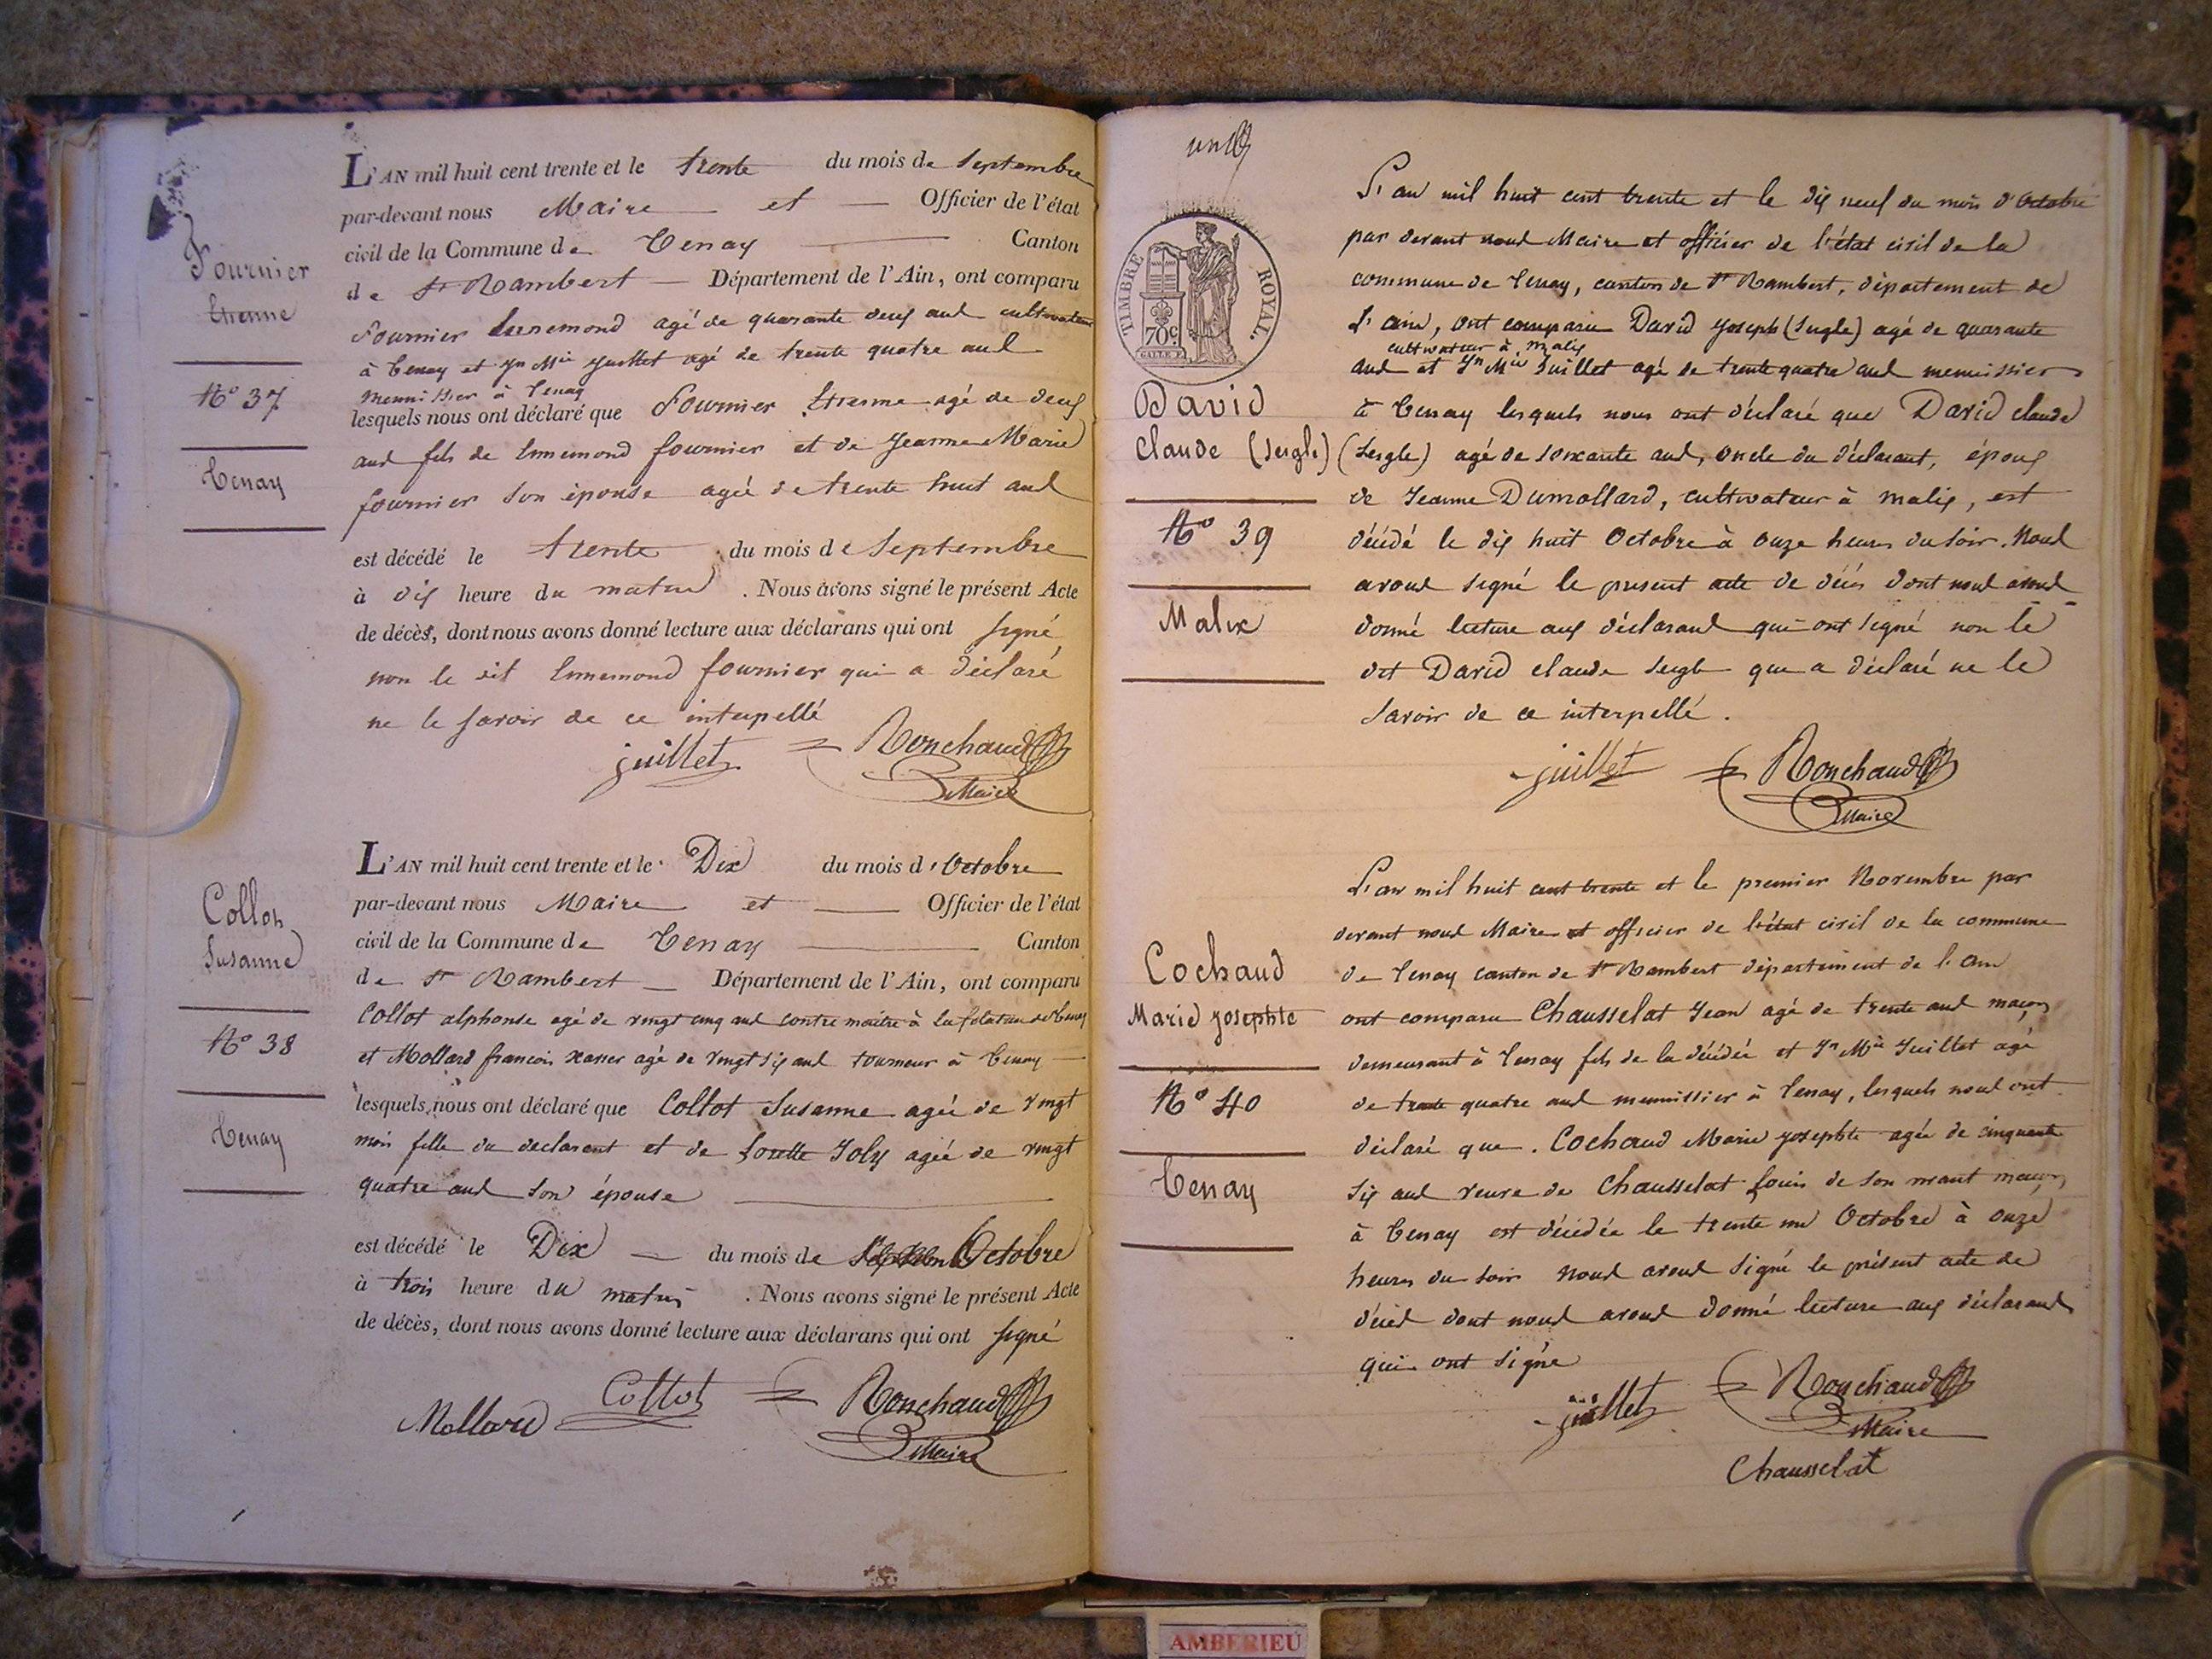 Fournier
Etienne
N° 37
Tenay
L'AN mil huit cent trente et le trente du mois de Septembre
par-devant nous Maire et Officier de l'état
civil de la Commune de Tenay Canton
de St Rambert Département de l'Ain, ont comparu
Fournier Ennemond agé de quarante deux ans cultivateur
à Tenay et Jn Mie Juillet agé de trente quatre ans
menuissier à Tenay
lesquels nous ont déclaré que Fournier Etienne agé de deux
ans fils de Ennemond fournier et de Jeanne Marie
fournier son épouse agée de trente huit ans
est décédé le trente du mois de Septembre
à dix heure du matin . Nous avons signé le présent Acte
de décès, dont nous avons donné lecture aux déclarans qui ont signé
non le dit Ennemond fournier qui a déclaré
ne le savoir de ce interpellé
juillet Ronchaud
Maire
Collot
Susanne
N° 38
Tenay
L'AN mil huit cent trente et le Dix du mois d'Octobre
par-devant nous Maire et Officier de l'état
civil de la Commune de Tenay Canton
de St Rambert Département de l'Ain, ont comparu
Collot alphonse agé de vingt cinq ans contre maitre à la filature de Tenay
et Mollard francois xavier agé de vingt six ans tourneur à Tenay
lesquels nous ont déclaré que Collot Susanne agée de vingt
mois fille du declarant et de Josette Joly agée de vingt
quatre ans son épouse
est décédé le Dix du mois de Octobre
à trois heure du matin . Nous avons signé le présent Acte
de décès, dont nous avons donné lecture aux déclarans qui ont signé
Mollard Collot Ronchaud
Maire
TIMBRE ROYAL.
70c.
David
Claude (Sergle)
N° 39
Malix
L'an mil huit cent trente et le dix neuf du mois d'Octobre
par devant nous Maire et officier de l'état civil de la
commune de Tenay, canton de St Rambert, département de
L'ain, ont comparu David Joseph (Sergle) agé de quarante
cultivateur à malix
ans et Jn Mie Juillet agé de trente quatre ans menuissier
à Tenay lesquels nous ont déclaré que David claude
(Sergle) agé de soixante ans, oncle du déclarant, époux
de Jeanne Dumollard, cultivateur à malix, est
décédé le dix huit Octobre à onze heures du soir. Nous
avons signé le present acte de décès dont nous avons
donné lecture aux déclarans qui ont signé non le
dit David claude Sergle que a déclaré ne le
savoir de ce interpellé.
juillet Ronchaud
Maire
Cochaud
Marie josephte
N° 40
Tenay
L'an mil huit cent trente et le premier Novembre par
devant nous Maire et officier de l'état civil de la commune
de Tenay canton de St Rambert département de l'ain
ont comparu Chausselat Jean agé de trente ans maçon
demeurant à Tenay fils de la décédée et Jn Mie Juillet agé
de trente quatre ans menuissier à Tenay, lesquels nous ont
déclaré que. Cochaud Marie josephte agée de cinquante
six ans veuve de Chausselat Louis de son vivant maçon
à Tenay est décédée le trente un Octobre à onze
heures du soir nous avons signé le présent acte de
décès dont nous avons donné lecture aux déclarans
qui ont signé
juillet Ronchaud
Maire
Chausselat
AMBERIEU